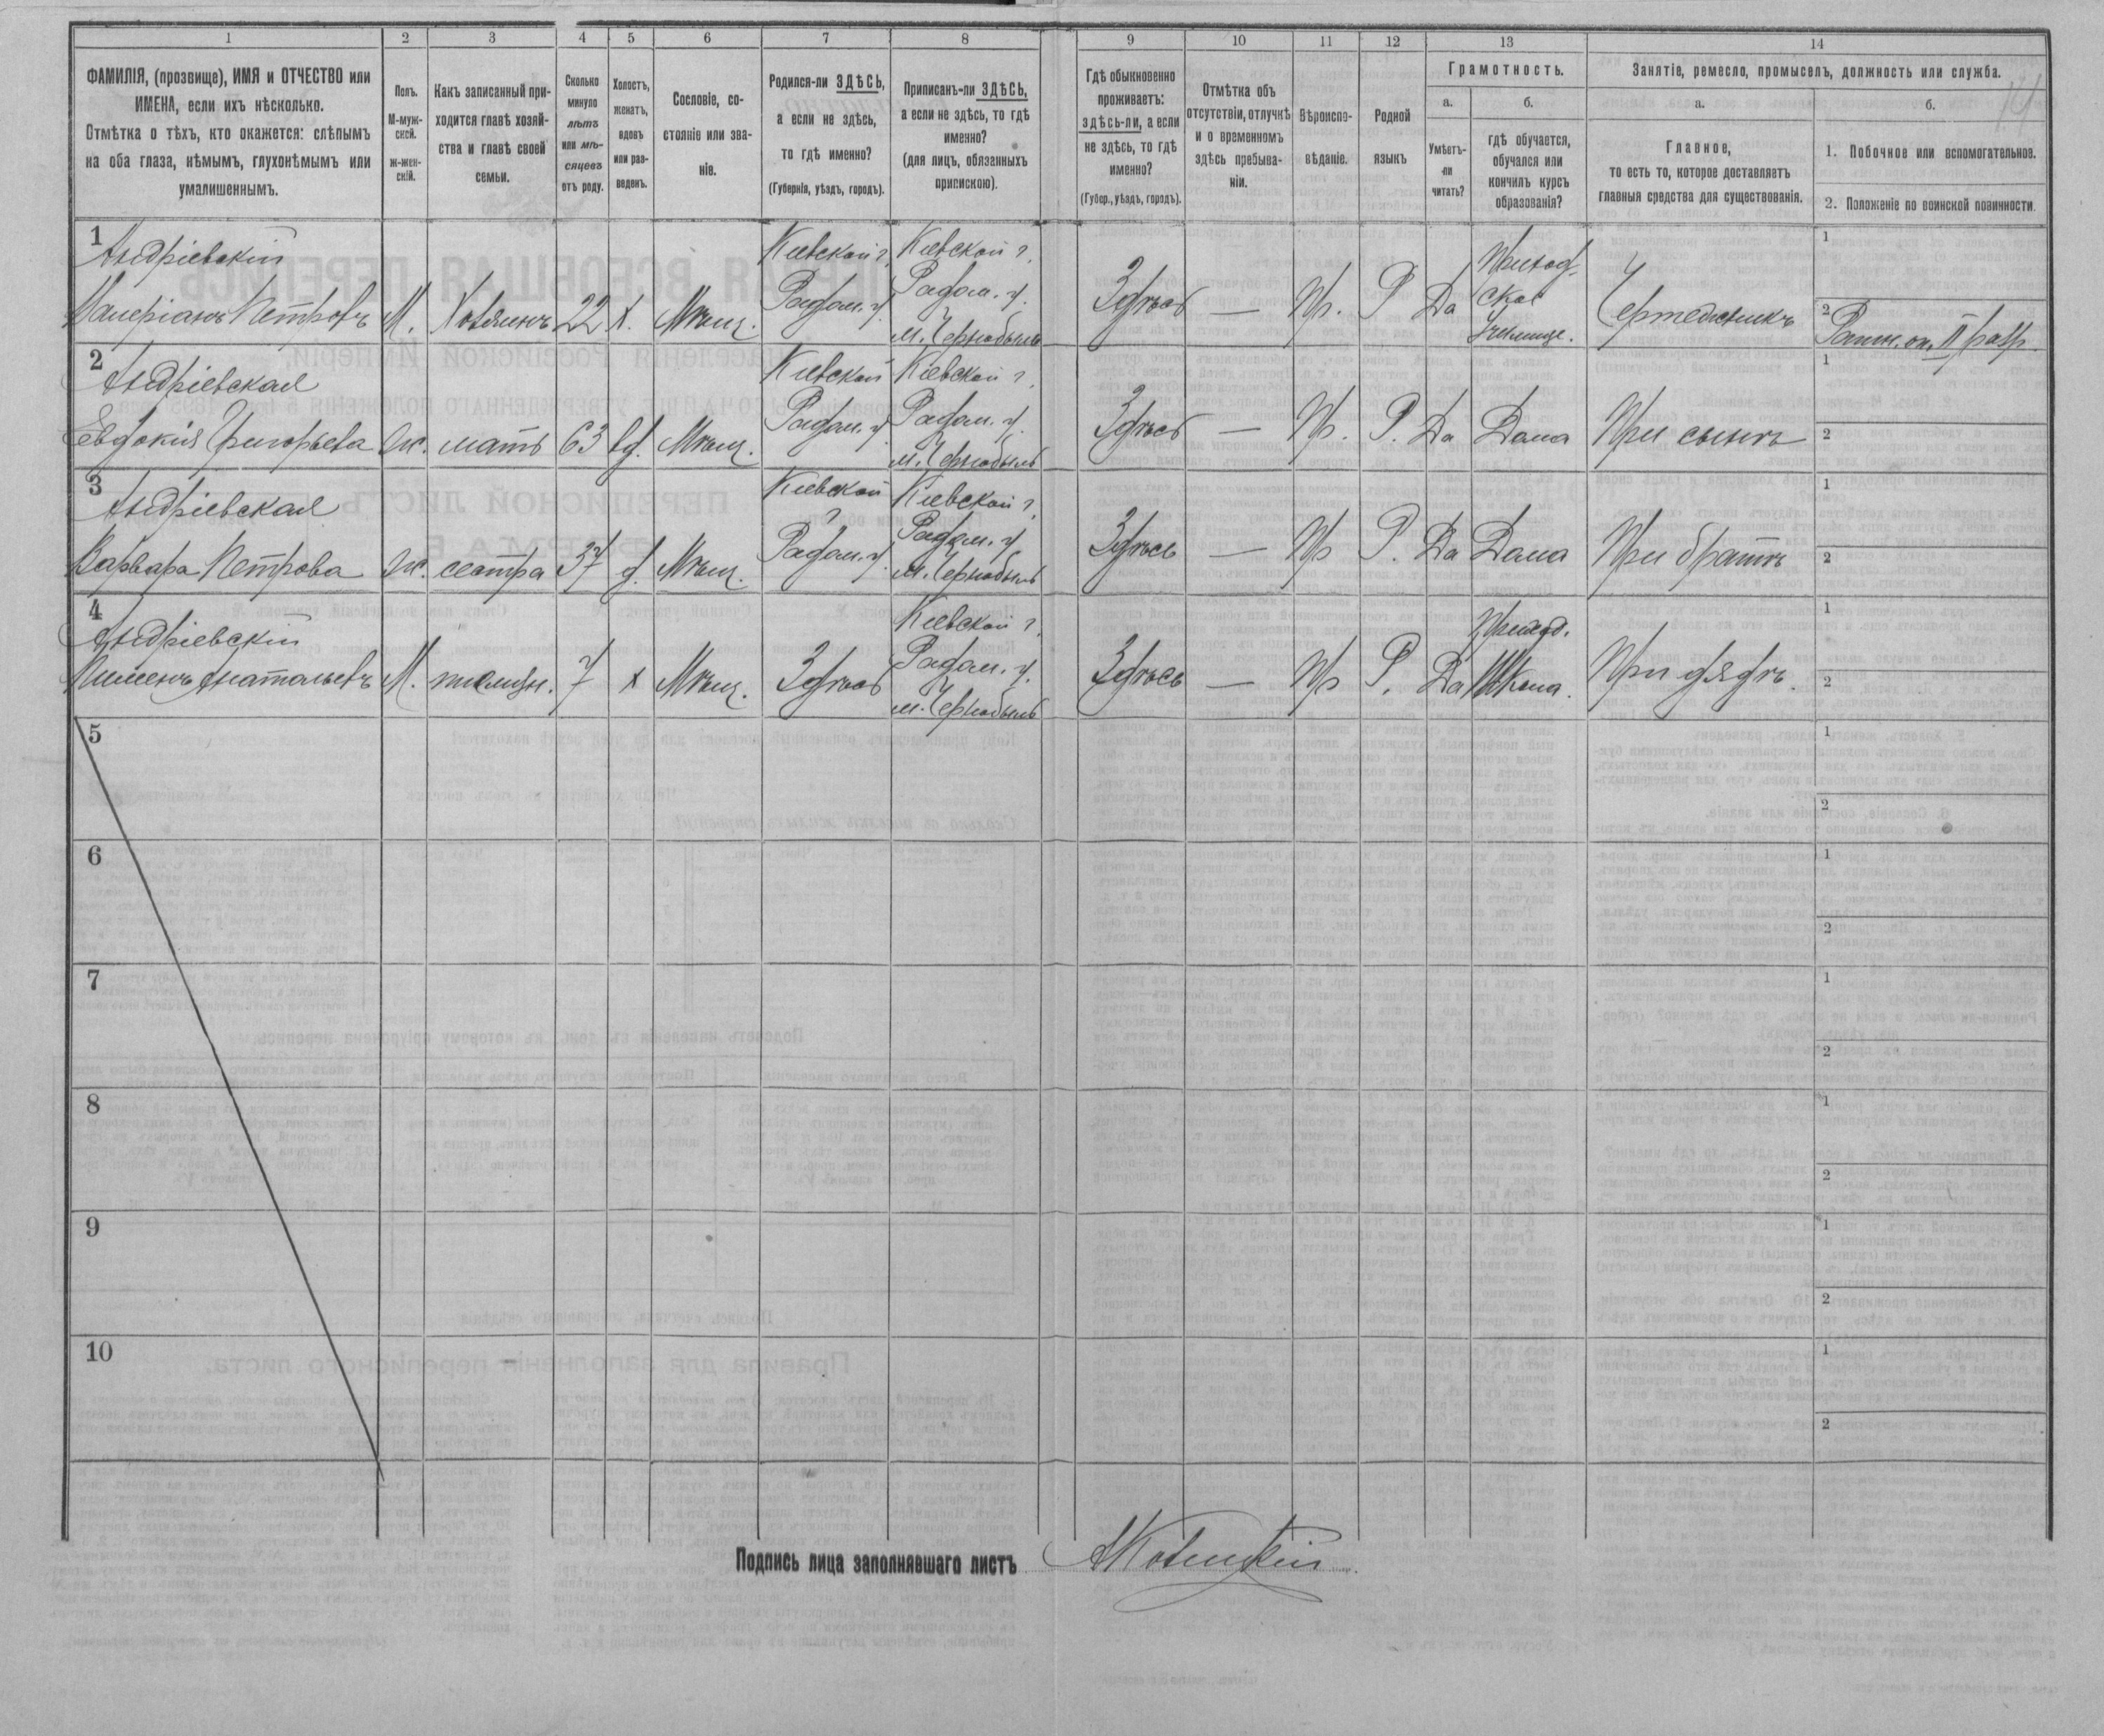 1 2 3 4 5 6 7 8 9 10 11 12 13 14
ФАМИЛІЯ, (прозвище), ИМЯ и ОТЧЕСТВО или
ИМЕНА, если ихъ нѣсколько.
Отмѣтка о тѣхъ, кто окажется: слѣпымъ
на оба глаза, нѣмымъ, глухонѣмымъ или
умалишеннымъ.
Полъ.
М-муж-
ской.
ж-жен-
скій.
Какъ записанный при-
ходится главѣ хозяй-
ства и главѣ своей
семьи.
Сколько
минуло
лѣтъ
или мѣ-
сяцевъ
отъ роду.
Холостъ,
женатъ,
вдовъ
или раз-
веденъ.
Сословіе, со-
стояніе или зва-
ніе.
Родился-ли ЗДѢСЬ,
а если не здѣсь,
то гдѣ именно?
(Губернія, уѣздъ, городъ).
Приписанъ-ли ЗДѢСЬ,
а если не здѣсь, то гдѣ
именно?
(для лицъ, обязанныхъ
припискою).
Гдѣ обыкновенно
проживаетъ:
здѣсь-ли, а если
не здѣсь, то гдѣ
именно?
(Губер., уѣздъ, городъ).
Отмѣтка объ
отсутствіи, отлучкѣ
и о временномъ
здѣсь пребыва-
ніи.
Вѣроиспо-
вѣданіе.
Родной
языкъ
Грамотность.
а.
Умѣетъ-
ли
читать?
б.
гдѣ обучается,
обучался или
кончилъ курсъ
образованія?
Занятіе, ремесло, промыселъ, должность или служба.
а.
Главное,
то есть то, которое доставляетъ
главныя средства для существованія.
б.
1. Побочное или вспомогательное.
2. Положеніе по воинской повинности.
14
1
Андріевскій
Валеріанъ Петровъ М. Хозяинъ 22 х. Мѣщ.
Кіевской г.
Радом. у.
Кіевской г.
Радом. у.
м. Чернобыль
Здѣсь — Пр. Р Да
Приход-
ское
Училище.
Чертежникъ
1
2
Ратн. оп. II разр.
2
Андріевская
Евдокія Григорьева ж. мать 63 вд. Мѣщ.
Кіевской
Радом. у.
Кіевской г.
Радом. у.
м. Чернобыль
Здѣсь — Пр. Р. Да Дома При сынѣ
1
2
3
Андріевская
Варвара Петрова ж. сестра 37 д. Мѣщ.
Кіевской
г.
Радом. у.
Кіевской г.
Радом. у.
м. Чернобыль
Здѣсь — Пр Р. Да Дома При братѣ
1
2
4
Андріевскій
Пименъ Анатольевъ М. племян. 7 х Мѣщ. Здѣсь
Кіевской г.
Радом. у.
м. Чернобыль
Здѣсь — Пр Р. Да
Приход.
Школа.
При дядѣ.
1
2
5
1
2
6
1
2
7
1
2
8
1
2
9
1
2
10
1
2
Подпись лица заполнявшаго листъ